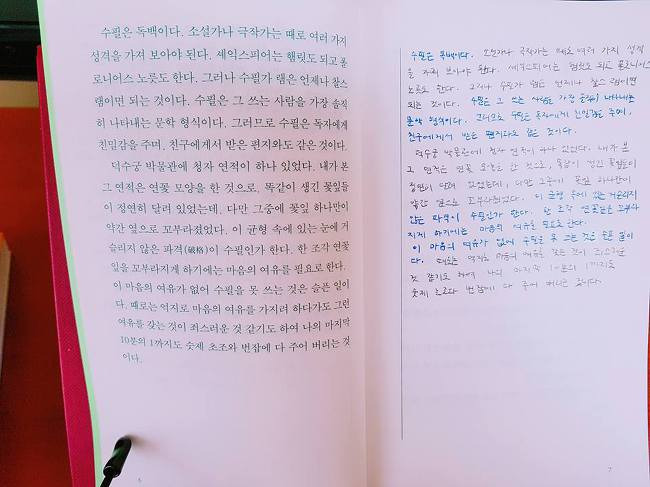 수필은 독백이다. 소설가나 극작가는 때로 여러 가지
성격을 가져 보아야 된다. 셰익스피어는 햄릿도 되고 폴
로니어스 노릇도 한다. 그러나 수필가 램은 언제나 찰스
램이면 되는 것이다. 수필은 그 쓰는 사람을 가장 솔직
히 나타내는 문학 형식이다. 그러므로 수필은 독자에게
친밀감을 주며, 친구에게서 받은 편지와도 같은 것이다.
덕수궁 박물관에 청자 연적이 하나 있었다. 내가 본
그 연적은 연꽃 모양을 한 것으로, 똑같이 생긴 꽃잎들
이 정연히 달려 있었는데, 다만 그중에 꽃잎 하나만이
약간 옆으로 꼬부라졌었다. 이 균형 속에 있는 눈에 거
슬리지 않은 파격(破格)이 수필인가 한다. 한 조각 연꽃
잎을 꼬부라지게 하기에는 마음의 여유를 필요로 한다.
이 마음의 여유가 없어 수필을 못 쓰는 것은 슬픈 일이
다. 때로는 억지로 마음의 여유를 가지려 하다가도 그런
여유를 갖는 것이 죄스러운 것 같기도 하여 나의 마지막
10분의 1까지도 숫제 초조와 번잡에 다 주어 버리는 것
이다.
6
수필은 독백이다. 소설가나 극작가는 때로 여러 가지 성격
을 가져 보아야 한다. 셰익스피어는 햄릿도 되고 폴로니어스
노릇도 한다. 그러나 수필가 램은 언제나 찰스 램이면
되는 것이다. 수필은 그 쓰는 사람을 가장 솔직히 나타내는
문학 형식이다. 그러므로 수필은 독자에게 친밀감을 주며,
친구에게서 받은 편지와도 같은 것이다.
덕수궁 박물관에 청자 연적이 하나 있었다. 내가 본
그 연적은 연꽃 모양을 한 것으로, 똑같이 생긴 꽃잎들이
정연히 달려 있었는데, 다만 그중에 꽃잎 하나만이
약간 옆으로 꼬부라졌었다. 이 균형 속에 있는 거슬리지
않는 파격이 수필인가 한다. 한 조각 연꽃잎을 꼬부라
지게 하기에는 마음의 여유를 필요로 한다.
이 마음의 여유가 없어 수필을 못 쓰는 것은 슬픈 일이
다. 때로는 억지로 마음의 여유를 갖는 것이 죄스러운
것 같기도 하여 나의 마지막 10분의 1까지도
숫제 초조와 번잡에 다 주어 버리는 것이다.
7